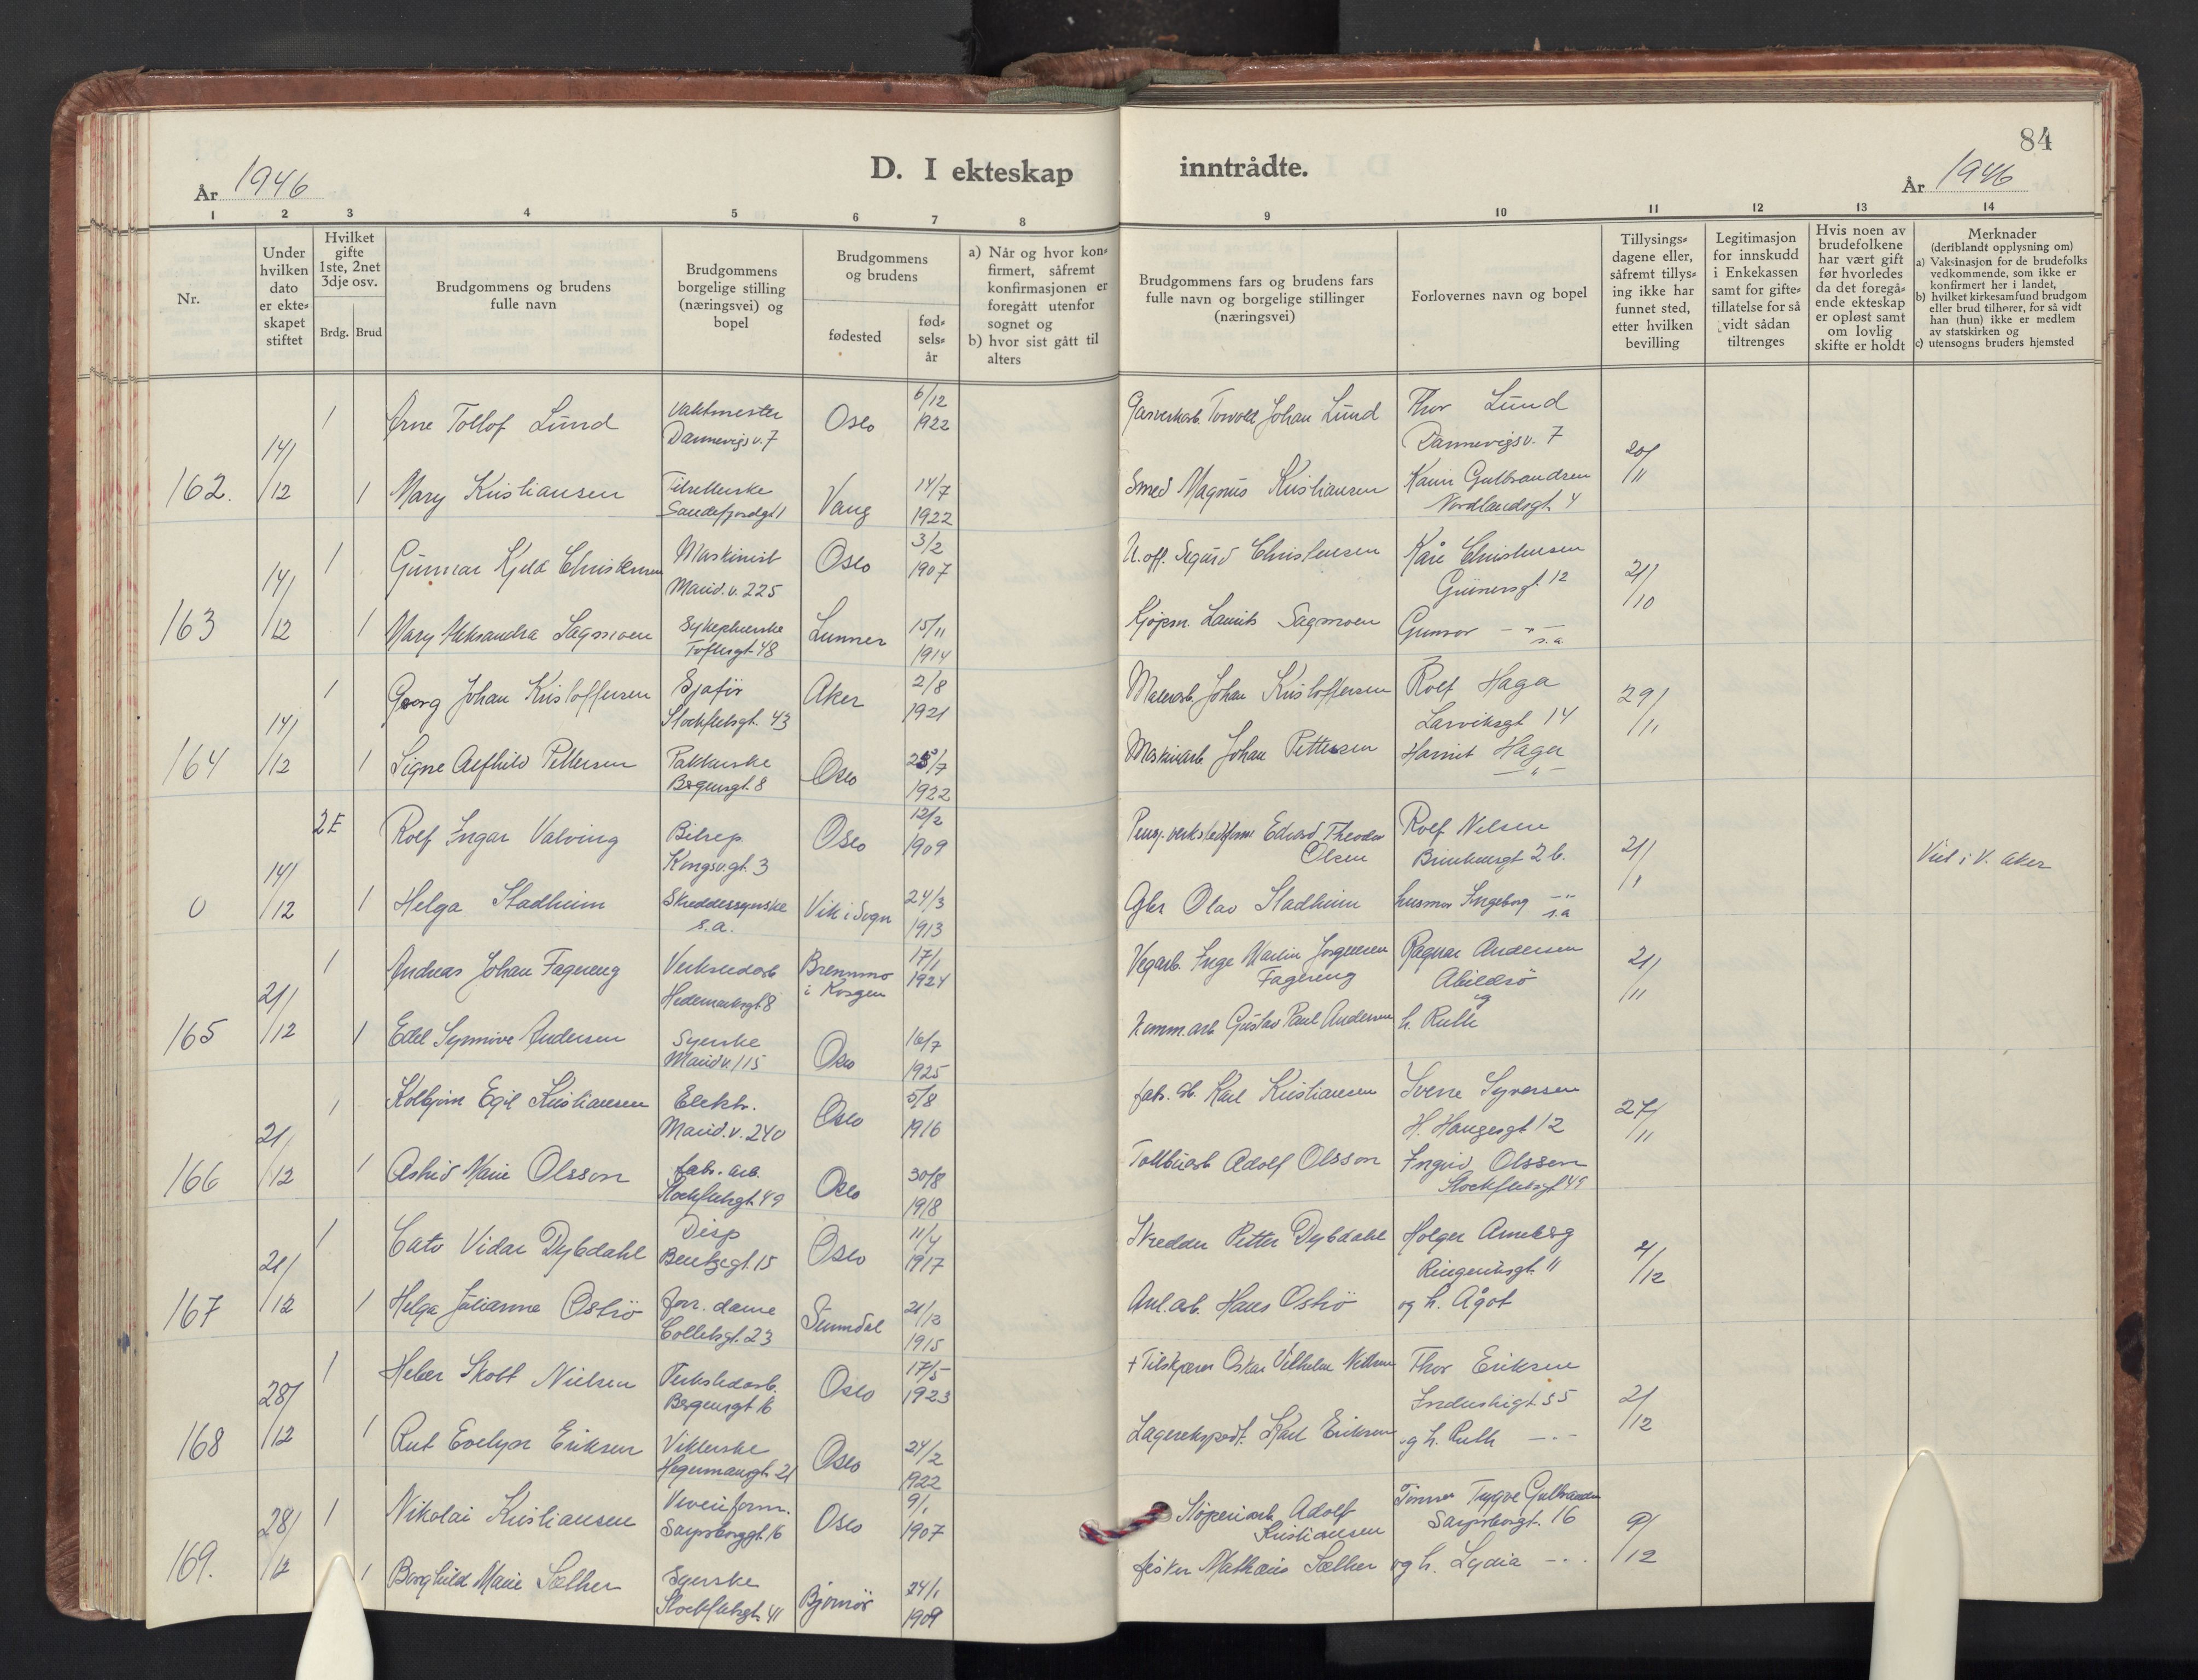 84
År 1946
D. I ekteskap inntrådte.
År 1946
1 2 3 4 5 6 7 8 9 10 11 12 13 14
Nr.
Under hvilken dato er ekteskapet stiftet
Hvilket gifte 1ste, 2net 3dje osv.
Brdg. Brud
Brudgommens og brudens fulle navn
Brudgommens borgelige stilling (næringsvei) og bopel
Brudgommens og brudens
fødested
fødselsår
a) Når og hvor konfirmert, såfremt konfirmasjonen er foregått utenfor sognet og
b) hvor sist gått til alters
Brudgommens fars og brudens fars fulle navn og borgelige stillinger (næringsvei)
Forlovernes navn og bopel
Tillysingsdagene eller, såfremt tillysing ikke har funnet sted, etter hvilken bevilling
Legitimasjon for innskudd i Enkekassen samt for giftetillatelse for så vidt sådan tiltrenges
Hvis noen av brudefolkene har vært gift før hvorledes da det foregående ekteskap er opløst samt om lovlig skifte er holdt
Merknader
(deriblandt opplysning om)
a) Vaksinasjon for de brudefolks vedkommende, som ikke er konfirmert her i landet,
b) hvilket kirkesamfund brudgom eller brud tilhører, for så vidt han (hun) ikke er medlem av statskirken og
c) utensogns bruders hjemsted
162. 14/12
1 Arne Tollof Lund Vaktmester Dannevigsv. 7 Oslo 6/12 1922 Torvold Johan Lund Thor Lund Dannevigsv. 7 20/11
1 Mary Kristiansen Sandefjordgt 1 Vang 14/7 1922 Smed Magnus Kristiansen Karin Gulbrandsen Nordlandsgt. 4
163 14/12
1 Gunnar Kjeld Christensen Maskinist Marid.v. 225 Oslo 3/2 1907 U.off. Sigurd Christensen Kåre Christensen Grünersgt. 12 21/10
1 Mary Aleksandra Sagmoen Sykepleierske Toftesgt 48 Lunner 15/11 1914 Kjøpm. Laurits Sagmoen Gunvor -"- s.a.
164 14/12
1 Georg Johan Kristoffersen Sjafør Stockfletsgt. 43 Aker 2/8 1921 Malerarb. Johan Kristoffersen Rolf Haga Larviksgt 14 29/11
1 Signe Alfhild Pettersen Pakkerske Bergensgt. 8 Oslo 25/7 1922 Maskinarb Johan Pettersen Harriet Haga -"-
0 14/12
2E Rolf Ingar Valving Bilrep. Kongsv.gt. 3 Oslo 12/2 1909 Edvard Theodor Olsen Rolf Nilsen 2 b. 21/1 Viet i V. Aker
1 Helga Stadheim Skreddersyerske s.a. Vik i Sogn 24/3 1913 Gbr Olav Stadheim husmor Ingeborg -"- s.a
165 21/12
1 Andreas Johan Fagereng Verkstedarb Hedemarksgt 8 Bremmo i Korgen 17/1 1924 Vegarb. Inge Martin Jørgensen Fagereng Ragnar Andersen Abildsø og 21/11
1 Edel Synnøve Andersen Syerske Marid.v. 115 Oslo 16/7 1925 Gustav Paul Andersen h. Ruth
166 21/12
1 Kolbjørn Egil Kristiansen Elektr. Marid.v. 240 Oslo 5/8 1916 fab. arb. Karl Kristiansen Sverre Syversen H. Haugesgt 12 27/11
1 Astrid Marie Olsson fab. arb. Stockfletsgt 49 Oslo 30/8 1918 Tollbuarb Adolf Olsson Ingrid Olsson Stockfletsgt 49
167 21/12
1 Cato Vidar Dybdahl Disp Bentzegt. 15 Oslo 11/4 1917 Skredder Petter Dybdahl Holger Anneberg Ringeriksgt. 11 4/12
1 Helga Julianne Ostrø forr. dame Colletsgt. 23 Sunndal 21/12 1915 Anl.arb. Hans Ostrø og h. Ågot
168 28/12
1 Heber Skott Nielsen Verkstedarb. Bergensgt 16 Oslo 17/5 1923 + Tilskjærer Oskar Vilhelm Nielsen Thor Eriksen Industrigt 55 2/12
1 Rut Evelyn Eriksen Viklerske Hegermannsgt. 21 Oslo 24/2 1922 Lagerekspedt. Karl Eriksen og h. Ruth -"-
169. 28/12
1 Nikolai Kristiansen Veveriform. Sarpsborggt. 16 Oslo 9/1 1907 Støperiarb Adolf Kristiansen Tømmer Trygve Gulbrandsen Sarpsborgt. 16 9/12
1 Borghild Marie Sæther Syerske Stockfletsgt. 41 Bjørnør 24/1 1909 fisker Mathæus Sæther og h. Lydia -"-